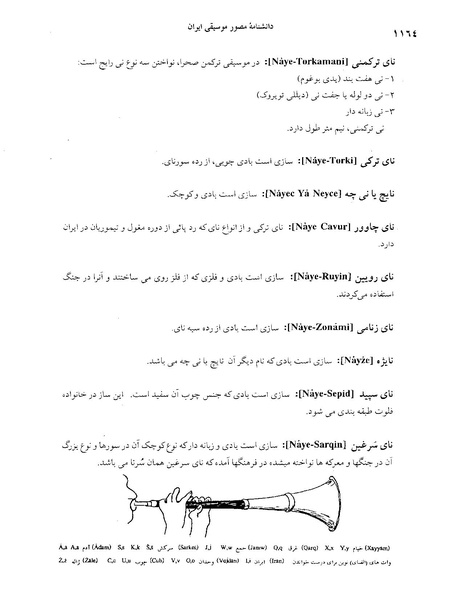 دانشنامهٔ مصور موسیقی ایران
١١٦٤
نای ترکمنی [Nâye-Torkamani]: در موسیقی ترکمن صحرا، نواختن سه نوع نی رایج است:
۱- نی هفت بند (یدی بوغوم)
۲- نی دو لوله یا جفت نی (دیللی تویروک)
۳- نی زبانه دار
نی ترکمنی، نیم متر طول دارد.
نای ترکی [Nâye-Torki]: سازی است بادی چوبی، از رده سورنای.
نایج یا نی چه [Nâyec Yâ Neyce]: سازی است بادی و کوچک.
نای چاوور [Nâye Cavur]: نای ترکی و از انواع نای که رد پائی از دوره مغول و تیموریان در ایران
دارد.
نای رویین [Nâye-Ruyin]: سازی است بادی و فلزی که از فلز روی می ساختند و آنرا در جنگ
استفاده می‌کردند.
نای زنامی [Nâye-Zonâmi]: سازی است بادی از رده سیه نای.
نایژه [Nâyže]: سازی است بادی که نام دیگر آن نایج یا نی چه می باشد.
نای سپید [Nâye-Sepid]: سازی است بادی که جنس چوب آن سفید است. این ساز در خانواده
فلوت طبقه بندی می شود.
نای سَرغین [Nâye-Sarqin]: سازی است بادی و زبانه دار که نوع کوچک آن در سورها و نوع بزرگ
آن در جنگها و معرکه ها نواخته میشده در فرهنگها آمده که نای سرغین همان سُرنا می باشد.
Â,â A,a آدم (Âdam) S,s K,k Š,š سرکش (Sarkeš) J,j W,w جمع (Jamw) Q,q غرق (Qarq) X,x Y,y خیام (Xayyâm)
Z,ž ژاله (Žâle) C,c U,u چوب (Cub) V,v O,o وجدان (Vojdân) I,i ایران (Irân) وات های (الفبای) نوین برای درست خواندن